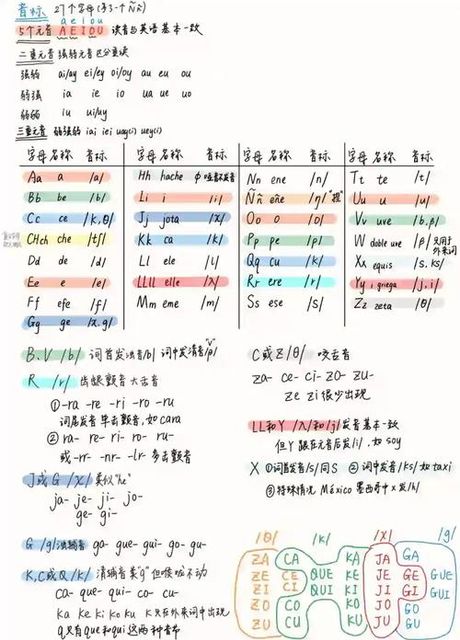 音标 27个字母(多了一个Ññ)
a e i o u
5个元音 A E I O U 读音与英语基本一致
二重元音 强弱元音区分重读
强弱 ai/ay ei/ey oi/oy au eu ou
弱强 ia ie io ua ue uo
弱弱 iu ui/uy
三重元音 弱强弱 iai iei uay(i) uey(i)
字母 名称 音标
Aa a /a/
Bb be /b/
Cc ce /k,θ/
CHch che /tʃ/
Dd de /d/
Ee e /e/
Ff efe /f/
Gg ge /x.g/
字母 名称 音标
Hh hache ∅
Ii i /i/
Jj jota /x/
Kk ca /k/
Ll ele /l/
LLll elle /λ/
Mm eme /m/
字母 名称 音标
Nn ene /n/
Ññ eñe /ŋ/
Oo o /o/
Pp pe /p/
Qq cu /k/
Rr ere /r/
Ss ese /s/
字母 名称 音标
Tt te /t/
Uu u /u/
Vv uve /b,β/
W doble uve /β/ 只用于外来词
Xx equis /s.ks/
Yy i griega /j,i/
Zz zeta /θ/
B.V /b/ 词首发浊音/b| 词中发清音/β/
R /r/ 齿龈颤音 大舌音
①-ra -re -ri -ro -ru
词尾发音 单击颤音,如cara
② ra- re- ri- ro- ru-
或-rr- -nr- -lr- 多击颤音
J或G /x/ 类似"he"
ja- je- ji- jo-
ge- gi-
G /g/浊辅音 ga- gue- gui- go- gu-
K,C或Q /k/ 清辅音类"g"但喉咙不动
ca- que- qui- co- cu-
ka ke ki ko ku K只在外来词中出现
q只有que和qui这两种音节
C或Z /θ/ 咬舌音
za- ce- ci- zo- zu-
ze zi 很少出现
LL和Y /λ/和/j/发音基本一致
但Y 跟在元音后发/i/.如 soy
X ①词首发/s/同S ②词中发/ks/如taxi
③特殊情况 México 墨西哥中x发/h/
/θ/ /k/ /x/ /g/
ZA CA KA JA GA
ZE CE QUE KE JE GE GUE
ZI CI QUI KI JI GI GUI
ZO CO KO JO GO
ZU CU KU JU GU